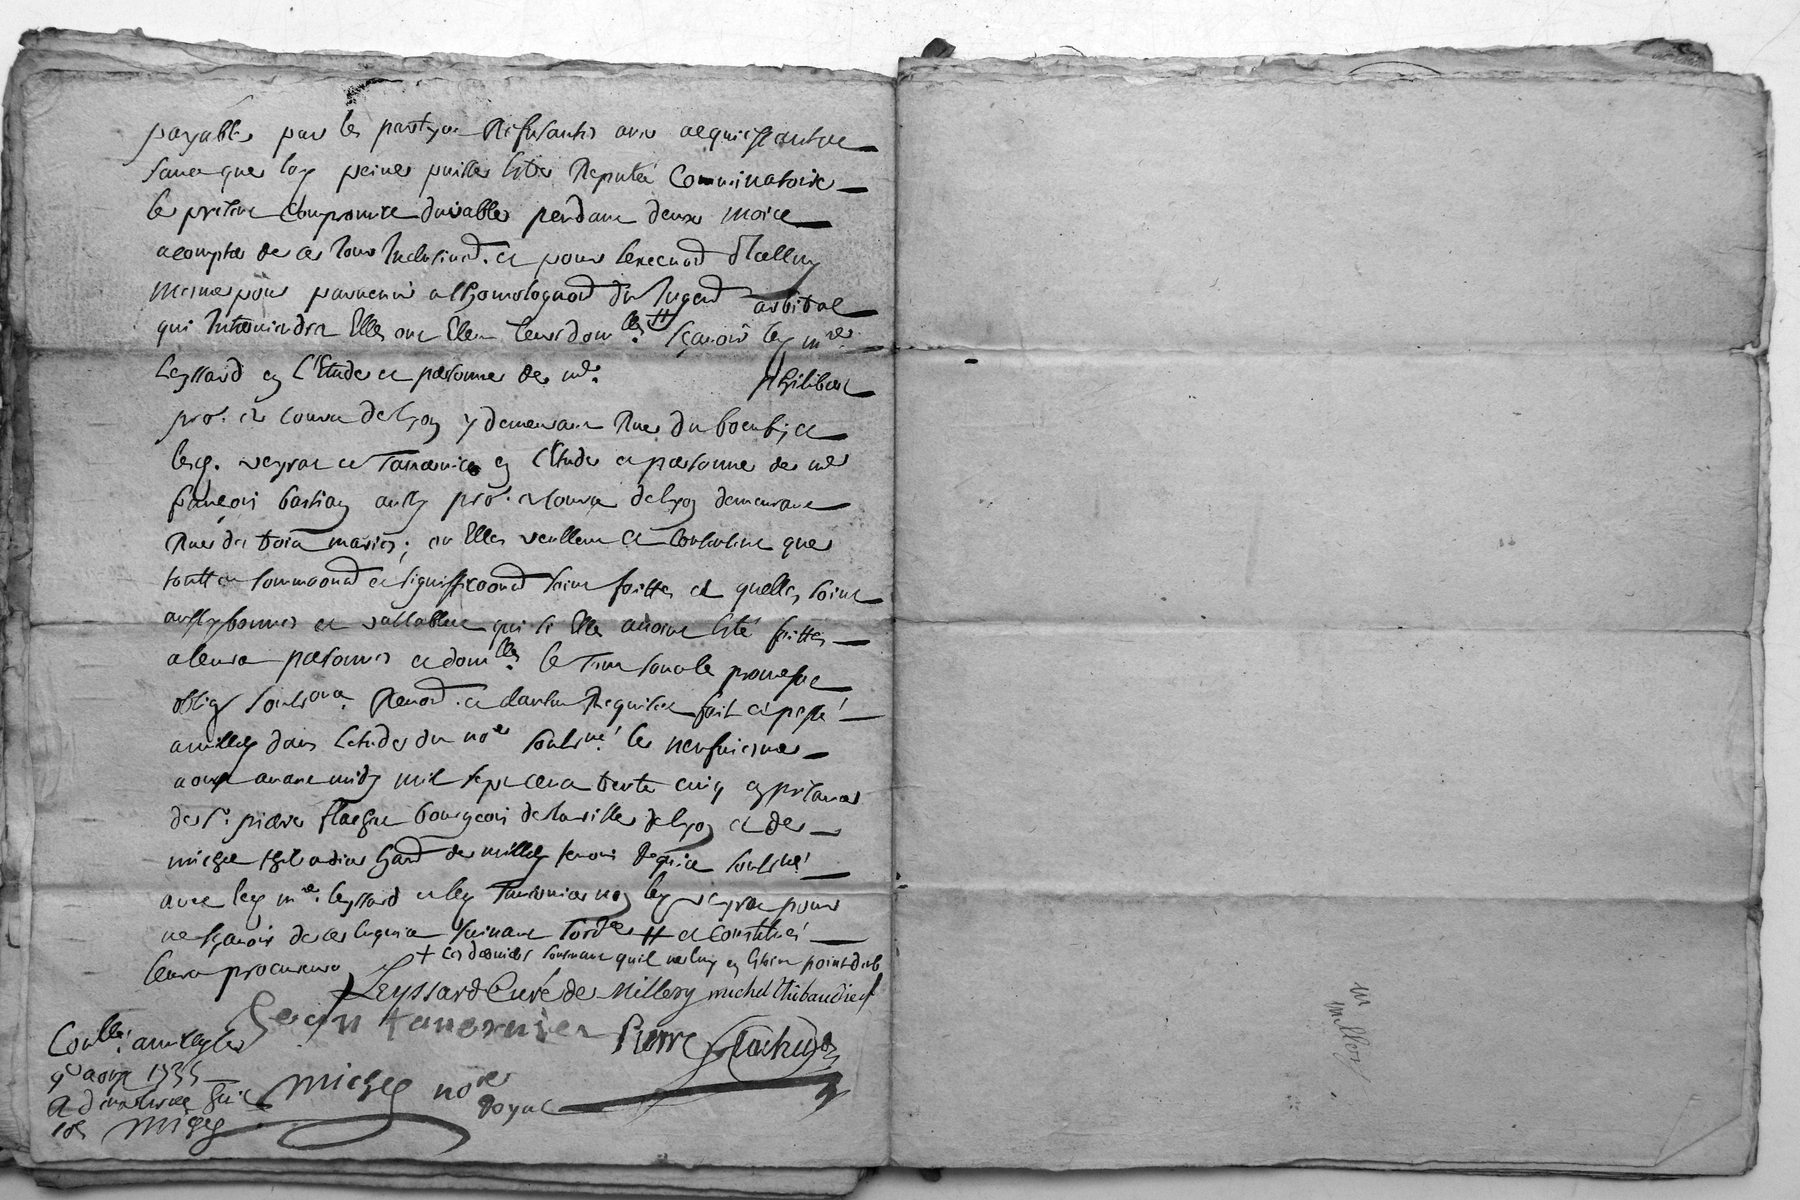 payable par les partyes Refusantes aux acquiessantes
sans que lad peine puisse Estre Reputée Comminatoire
le present Compromis durable pendant deux mois
a compter de ce Jour Inclusived. et pour lexecuaod dIcelluy
mesme pour parvenir a lhomologaod du Jugend arbitral
qui Interviendra Elles ont Eleu leurs dom.lles # sçavoir led m.re
Leyssard en l'Etude et personne de me. philibert
pro.r es cours de Lyon y demeurant Rue du boeuf, et
lesd. veyrat et Tavernier en l'Etude et personne de me
françois bastian aussy pro.r es cours de Lyon demeurant
Rue des trois maries; ou Elles veullent et Consentent que
touttes sommaond et signifficaond soint faittes et quelles soint
aussy bonnes et vallables que si Elles avoint Esté faittes
a leurs personnes et dom.lles le tout sous les promesse
oblig soubs.ons Renond. et clauses Requises fait et passé
a millery dans letude du no.re soubs.né le neufviesme
aoust avant midy mil sept cent trente cinq en presence
de s.r pierre flachy bourgeois de la ville de Lyon et de
michel thibaudier hand de millery temoins Requis soubs.né
avec led m.re leyssard et led Tavernier non led veyrat pour
ne sçavoir de ce Enquis suivant lord.ce # et constitué
leurs procureurs
+ Ces derniers sommant quil ne luy en Estoit point deub
Leyssard Curé de Millery michel thibaudier
Jean tavernier Pierre flachy
Con.llé a millery le
9e aoust 1735
michel no.re Royal
Michel
m
millery